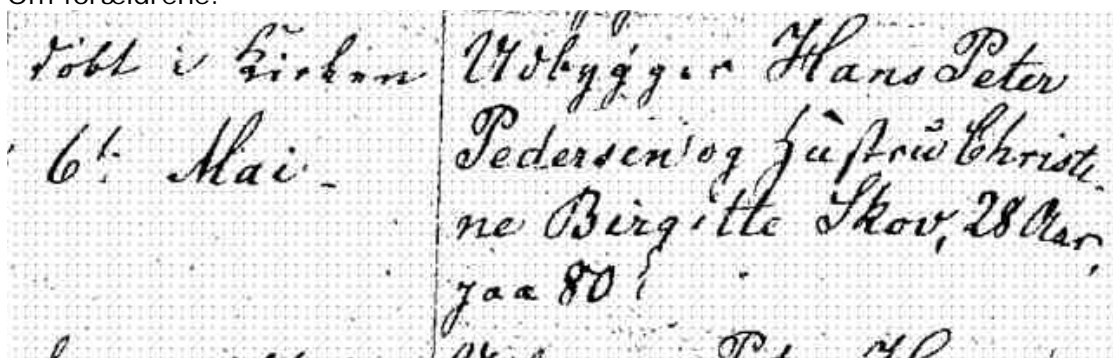 Om forældrene:
døbt i Kirken
6t. Mai -
Udbygger Hans Peter
Pedersen og Hustru Christi-
ne Birgitte Skov, 28 Aar,
paa 80